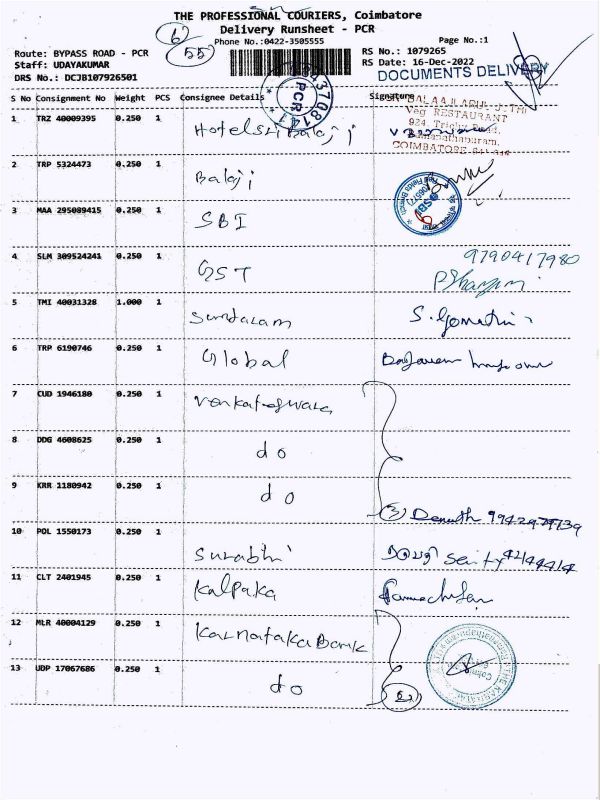 THE PROFESSIONAL COURIERS, Coimbatore
Delivery Runsheet - PCR
Phone No.:0422-3505555
Page No.:1
55
Route: BYPASS ROAD - PCR
RS No.: 1079265
Staff: UDAYAKUMAR
RS Date: 16-Dec-2022
DRS No.: DCJB107926501
DOCUMENTS DELIVERY
PCR
S No Consignment No Weight PCS Consignee Details Signature
Veg RESTAURANT
924, Trichy Road,
COIMBATORE
1 TRZ 40009395 0.250 1 Hotel Sri Balaji
2 TRP 5324473 0.250 1 Balaji
3 MAA 295089415 0.250 1 SBI
SBI
4 SLM 309524241 0.250 1 GST 9790417980
5 TMI 40031328 1.000 1 Sundaram S. Gomathi
6 TRP 6190746 0.250 1 Global
7 CUD 1946180 0.250 1 Venkateswara
8 DDG 4608625 0.250 1 do
9 KRR 1180942 0.250 1 do
3
10 POL 1550173 0.250 1 Surabhi
11 CLT 2401945 0.250 1 Kalpaka
12 MLR 40004129 0.250 1 Karnataka Bank
13 UDP 17067686 0.250 1 do